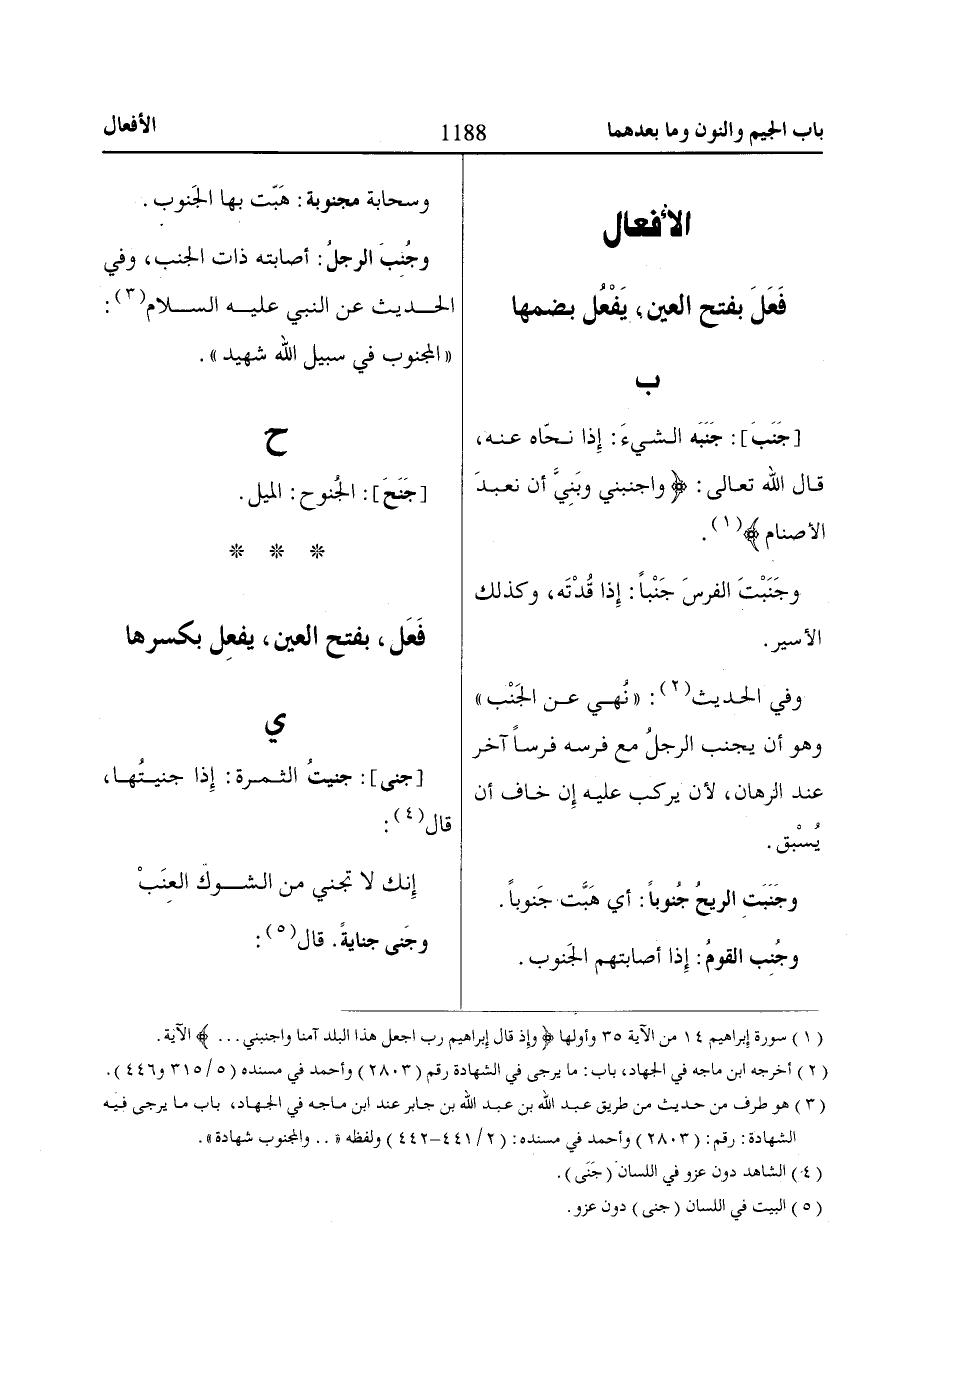 باب الجيم والنون وما بعدهما
1188
الأفعال
الأفعال
فَعَلَ بفتح العين، يَفْعُل بضمها
ب
[جَنَبَ]: جَنَبَه الشيءَ: إذا نحّاه عنه،
قال الله تعالى: ﴿واجنبني وبَنِيَّ أن نعبدَ
الأصنام﴾(١).
وجَنَبْتَ الفرسَ جَنْباً: إذا قُدْتَه، وكذلك
الأسير.
وفي الحديث(٢): «نُهي عن الجَنْب»
وهو أن يجنب الرجلُ مع فرسه فرساً آخر
عند الرهان، لأن يركب عليه إن خاف أن
يُسْبق.
وجَنَبَت الريحُ جُنوباً: أي هَبَّت جَنوباً.
وجُنب القومُ: إذا أصابتهم الجَنوب.
وسحابة مجنوبة: هَبّت بها الجَنوب.
وجُنِبَ الرجلُ: أصابته ذات الجنب، وفي
الحديث عن النبي عليه السلام(٣):
«المجنوب في سبيل الله شهيد».
ح
[جَنَحَ]: الجُنوح: الميل.
* * *
فَعَل، بفتح العين، يفعِل بكسرها
ي
[جنى]: جنيتُ الثمرة: إذا جنيتُها،
قال(٤):
إنك لا تجني من الشوك العِنَبْ
وجَنى جنايةً. قال(٥):
(١) سورة إبراهيم ١٤ من الآية ٣٥ وأولها ﴿وإذ قال إبراهيم رب اجعل هذا البلد آمنا واجنبني...﴾ الآية.
(٢) أخرجه ابن ماجه في الجهاد، باب: ما يرجى في الشهادة رقم (٢٨٠٣) وأحمد في مسنده (٣١٥/٥ و٤٤٦).
(٣) هو طرف من حديث من طريق عبد الله بن عبد الله بن جابر عند ابن ماجه في الجهاد، باب ما يرجى فيه
الشهادة: رقم: (٢٨٠٣) وأحمد في مسنده: (٤٤١/٢-٤٤٢) ولفظه «.. والمجنوب شهادة».
(٤) الشاهد دون عزو في اللسان (جَنَى).
(٥) البيت في اللسان (جنى) دون عزو.